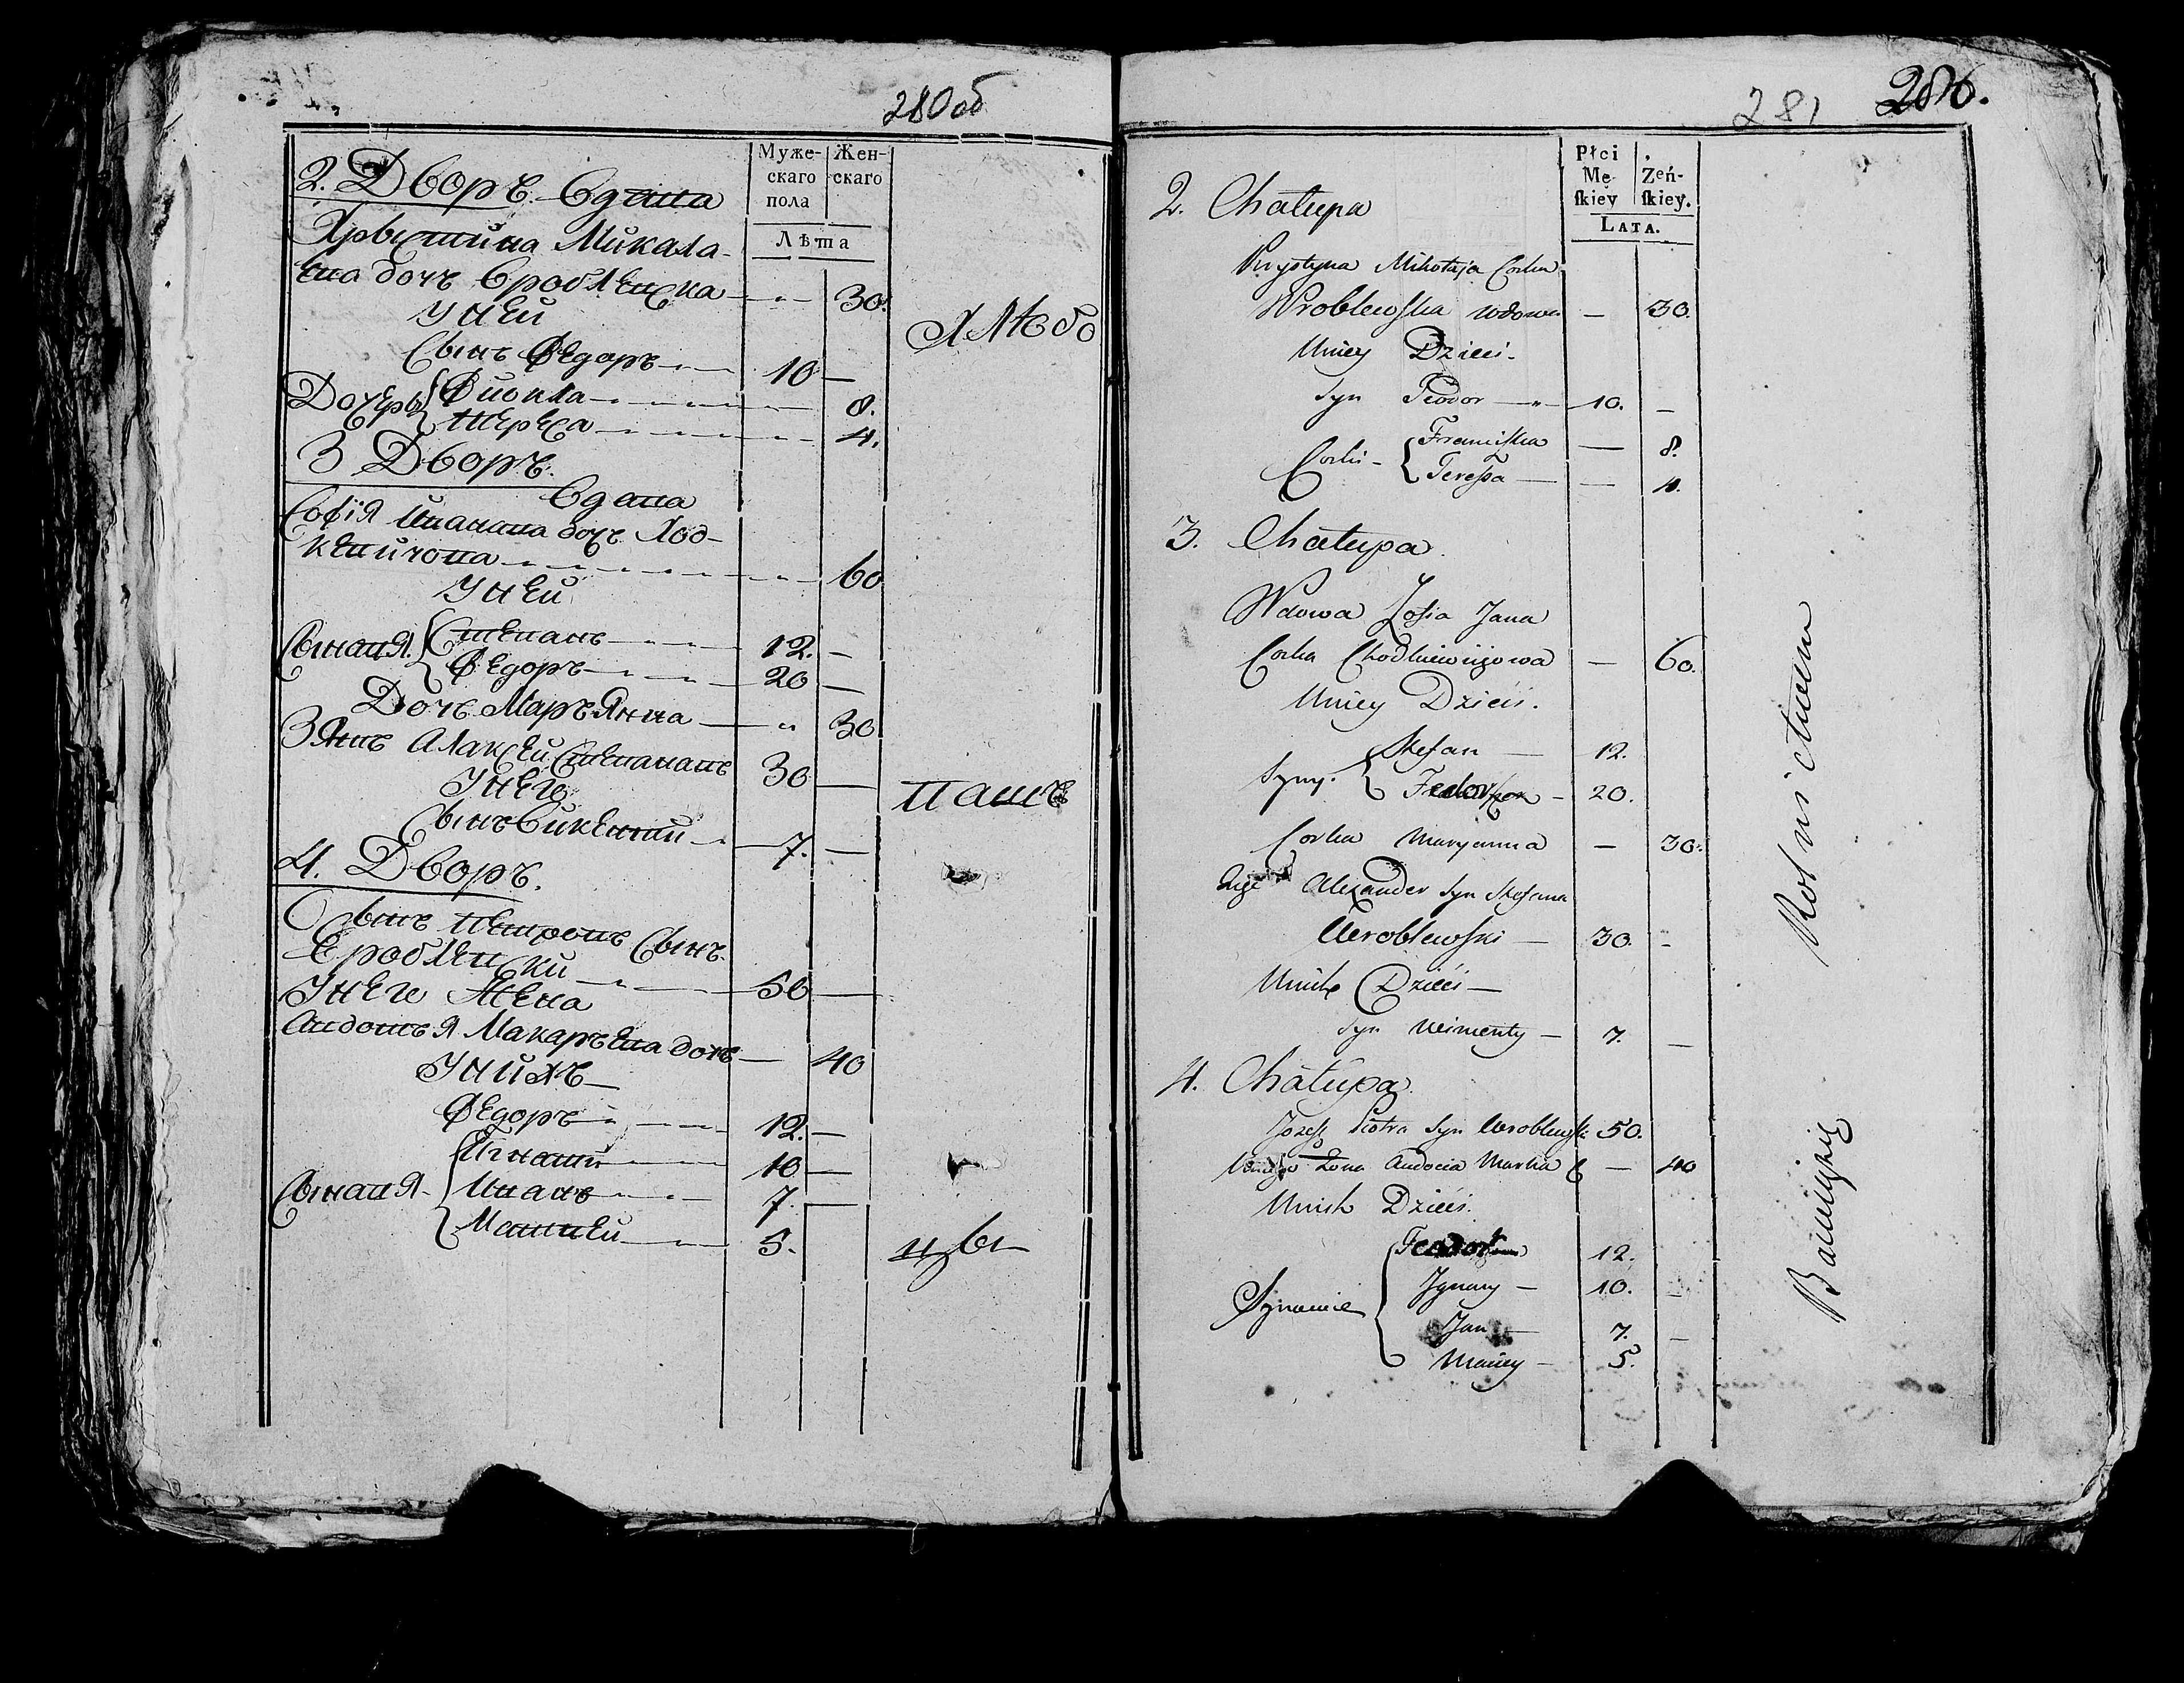 280об
Муже-
скаго
пола
Жен-
скаго
Лѣта
2. Дворъ. Вдава
Хрыстина Микала-
ева дочъ Вроблевска 30.
У ней
Сынъ Федоръ 10 —
Дочеры Фіокла 8.
Тереса 4.
3 Дворъ.
Вдава
Софія Иванава дочъ Ход-
кевичова 60
У ней
Сынавя Степанъ 12. —
Федоръ 20 —
Дочъ Маръянна 30
Зять Алаксей Степанавъ 30 —
У него
Сынъ Викентий 7. —
4. Дворъ.
Петровъ Сынъ
Вроблевски 50 —
У него Жена
Авдотъя Макаръева дочъ 40
У нихъ
Федоръ 12. —
Сынавя Игнати 10 —
Иванъ 7.
Матвей 5.
хлѣбо
паш
цы
281
286.
Płci
Mę-
ſkiey
Żeń-
ſkiey.
LATA.
2. Chałupa
Krystyna Mikołaja Corka
Wroblewſka wdowa — 30.
Uniey Dzieci.
Syn Teodor 10. —
Corki Franciſka — 8.
Tereſsa — 4.
3. Chałupa.
Wdowa Zofia Jana
Corka Chodkiewiczowa — 60.
Uniey Dzieci.
Syny. Stefan — 12.
Fedor 20.
Corka Maryanna — 30.
Alexander Syn Stefana
Wroblewſki — 30. —
Unich Dzieci —
Syn Wimenty — 7. —
4. Chałupa
Jozef Piotra Syn Wroblewſki 50.
Żona Audocia Marka C — 40
Unich Dzieci.
Synowie Feodor 12.
Jgnacy — 10. —
Jan — 7. —
Maciey — 5.
Rolnictwem
Bawiących